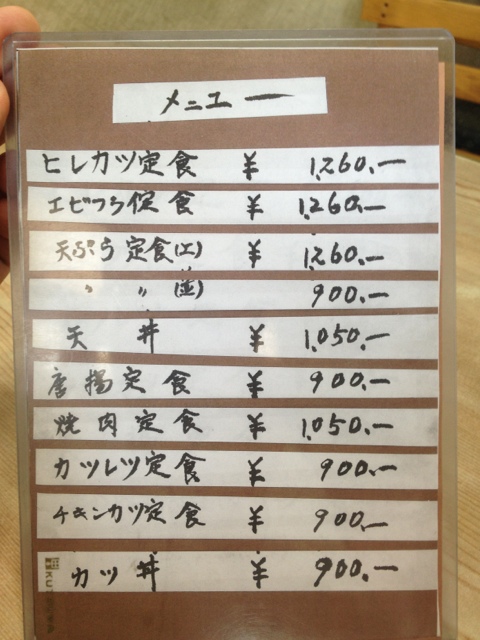 メニュー
ヒレカツ定食 ¥ 1,260.—
エビフライ定食 ¥ 1,260.—
天ぷら定食(エ) ¥ 1,260.—
〃 〃 (並) 900.—
天丼 ¥ 1,050.—
唐揚定食 ¥ 900.—
焼肉定食 ¥ 1,050.—
カツレツ定食 ¥ 900.—
チキンカツ定食 ¥ 900.—
カツ丼 ¥ 900.—